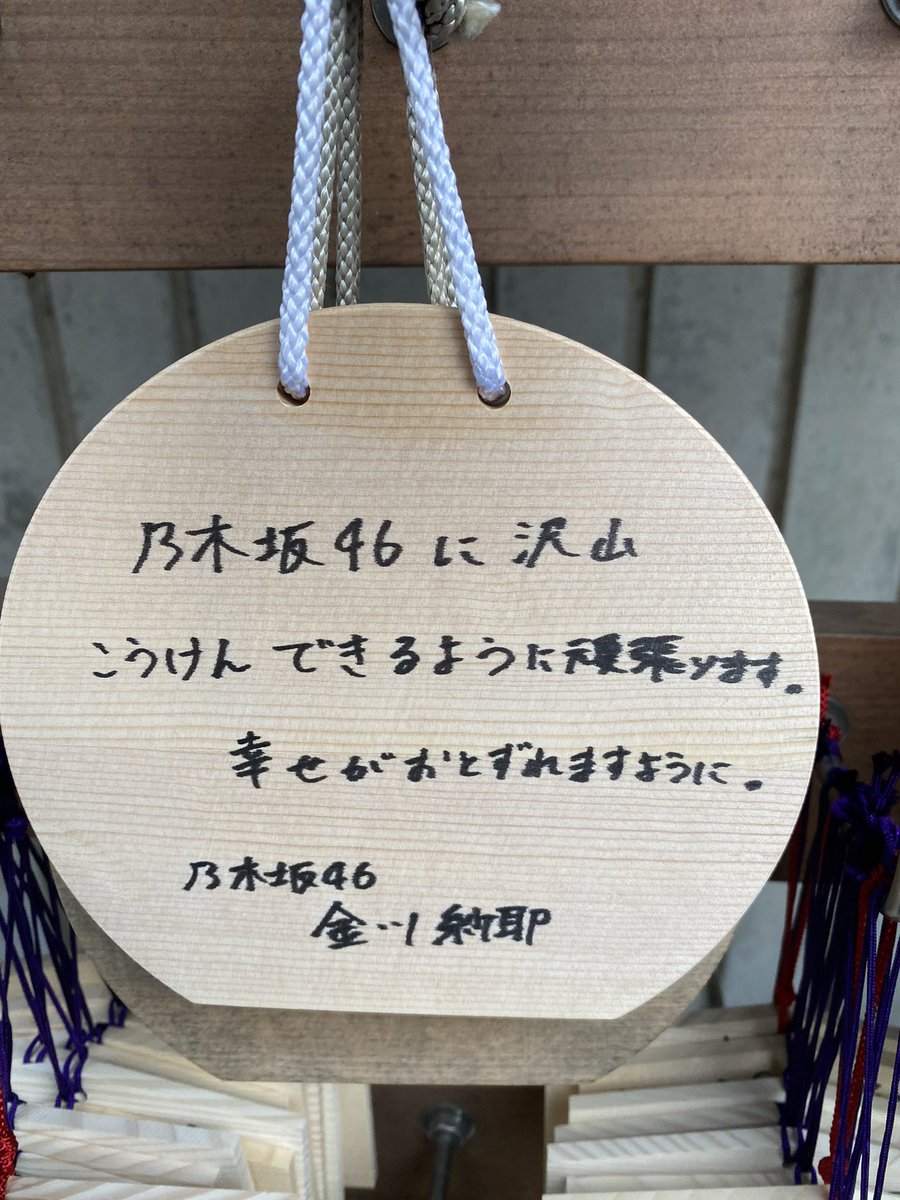 乃木坂46に沢山
こうけんできるように頑張ります。
幸せがおとずれますように。
乃木坂46
金川紗耶